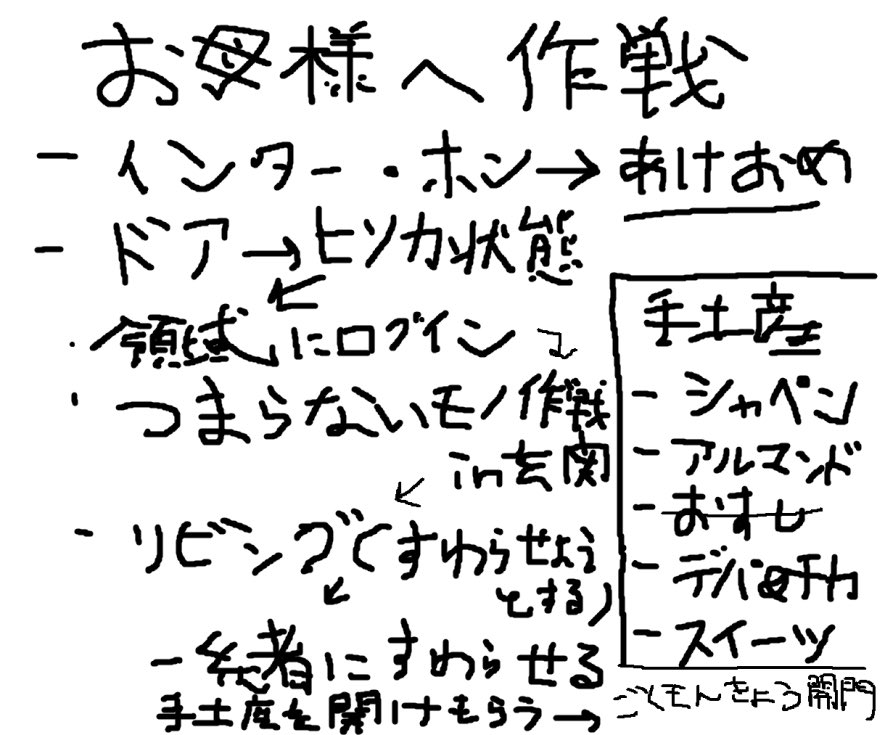 お母様へ作戦
- インター・ホン→あけおめ
- ドア→ヒソカ状態
・領域にログイン
・つまらないモノ作戦
in玄関
・リビング(すわらせよう
とする)
- 統者にすわらせる
手土産を開けもらう→
手土産
- シャペン
- アルマンド
- おすし
- デパ地チカ
- スイーツ
ごくもんきょう開門